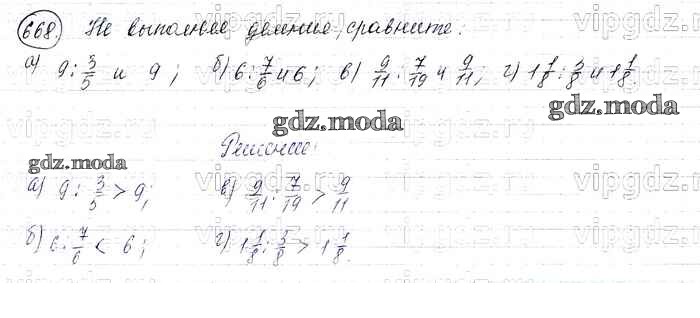 668. Не выполняя деление, сравните:
а) 9 : 3/5 и 9; б) 6 : 7/6 и 6; в) 9/11 : 7/19 и 9/11; г) 1 1/8 : 3/8 и 1 1/8
gdz.moda gdz.moda
Решение:
gdz.moda
а) 9 : 3/5 > 9; в) 9/11 : 7/19 > 9/11
б) 6 : 7/6 < 6; г) 1 1/8 : 3/8 > 1 1/8
gdz.moda
vipgdz.ru